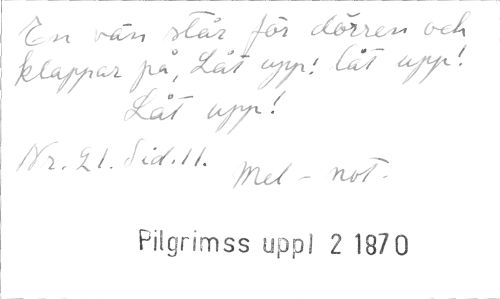 En vän står för dörren och
klappar på, Låt upp! låt upp!
Låt upp!
Nr. 21. Sid. 11. Mel - not.
Pilgrimss uppl 2 1870